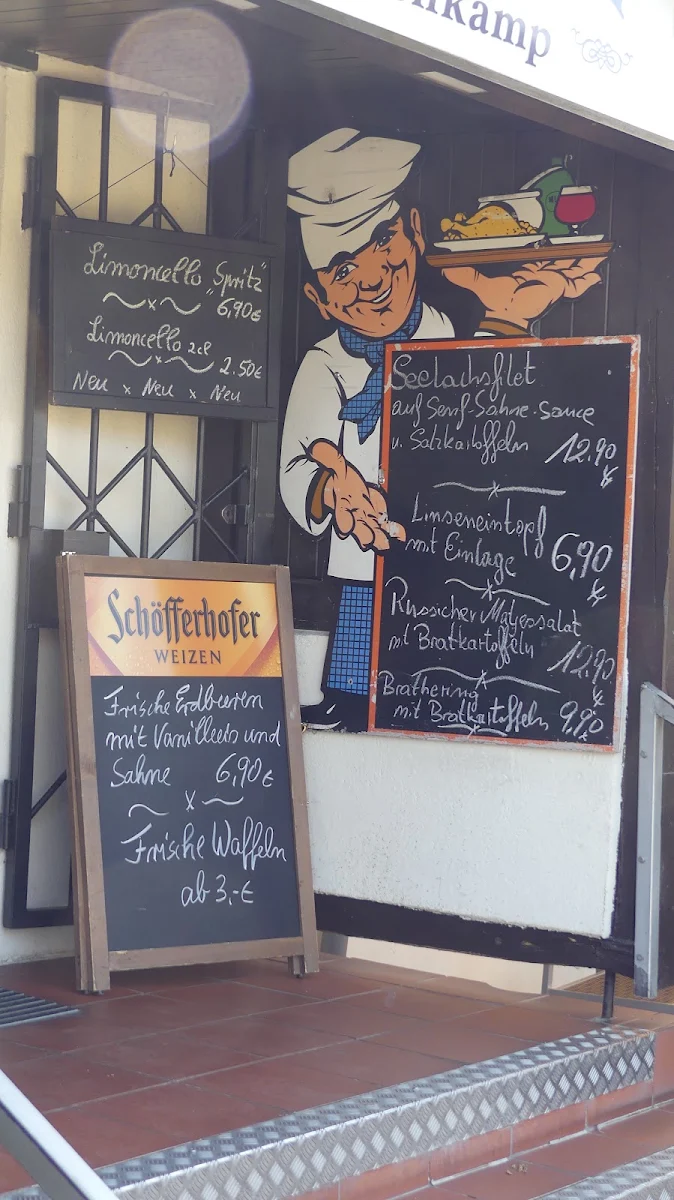 Limoncello „Spritz"
6,90€
Limoncello 2cl
2.50€
Neu x Neu x Neu
Seelachsfilet
auf Senf-Sahne-Sauce
u. Salzkartoffeln 12,90
Linseneintopf
mit Einlage 6,90
Russicher Matjessalat
mit Bratkartoffeln 12,90
Brathering
mit Bratkartoffeln 9,90
Schöfferhofer
WEIZEN
Frische Erdbeeren
mit Vanilleeis und
Sahne 6,90€
Frische Waffeln
ab 3,-€